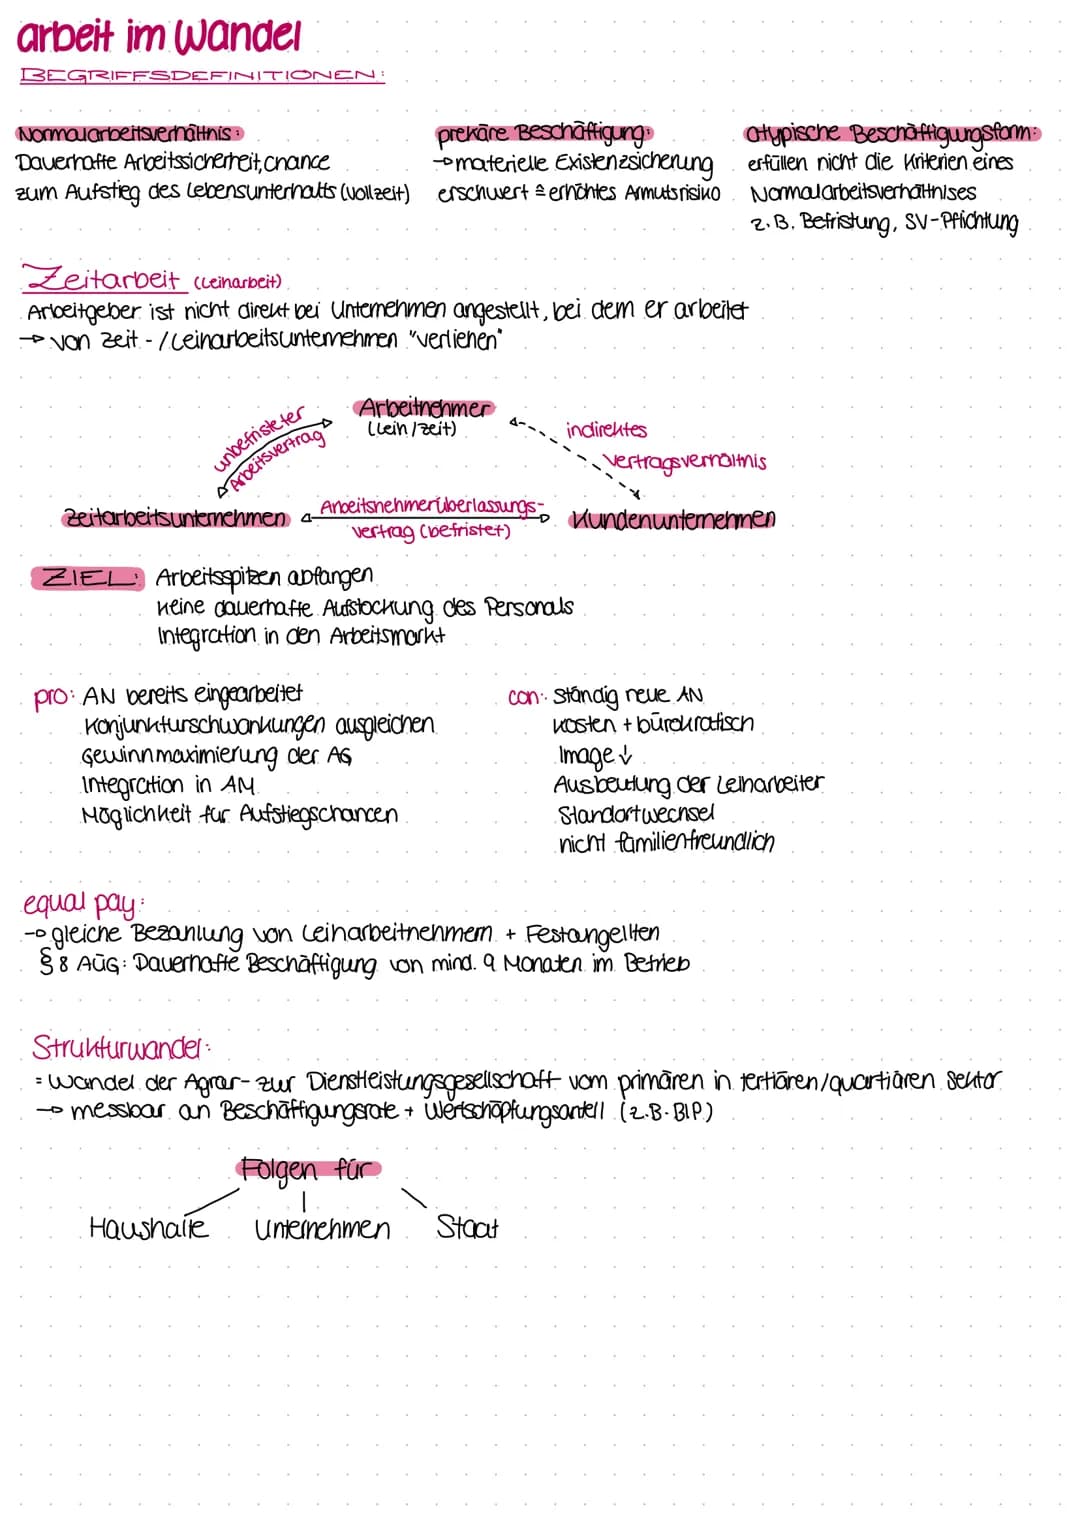 arbeit im Wandel
BEGRIFFSDEFINITIONEN:
Normalarbeitsverhältnis:
Dauerhafte Arbeitssicherheit, chance
zum Aufstieg des Lebensunterhalts (Vollzeit)
prekäre Beschäftigung:
→ materielle Existenzsicherung
erschwert ≙ erhöhtes Armutsrisiko
atypische Beschäftigungsform:
erfüllen nicht die Kriterien eines
Normalarbeitsverhältnises
z.B. Befristung, SV-Pflichtung
Zeitarbeit (Leiharbeit)
Arbeitgeber ist nicht direkt bei Unternehmen angestellt, bei dem er arbeitet
→ von Zeit-/Leiharbeitsunternehmen "verliehen"
Arbeitnehmer
(Leih/zeit)
unbefristeter
Arbeitsvertrag
indirektes
Vertragsverhältnis
Zeitarbeitsunternehmen
Arbeitsnehmerüberlassungs-
vertrag (befristet)
Kundenunternehmen
ZIEL: Arbeitsspitzen abfangen
keine dauerhafte Aufstockung des Personals
Integration in den Arbeitsmarkt
pro: AN bereits eingearbeitet
Konjunkturschwankungen ausgleichen
Gewinnmaximierung der AG
Integration in AM
Möglichkeit für Aufstiegschancen
con: ständig neue AN
kosten + bürokratisch
Image ↓
Ausbeutung der Leiharbeiter
Standortwechsel
nicht familienfreundlich
equal pay:
→ gleiche Bezahlung von Leiharbeitnehmern + Festangellten
§ 8 AÜG: Dauerhafte Beschäftigung von mind. 9 Monaten im Betrieb
Strukturwandel:
= Wandel der Agrar- zur Dienstleistungsgesellschaft vom primären in tertiären/quartiären Sektor
→ messbar an Beschäftigungsrate + Wertschöpfungsanteil (z.B. BIP)
Folgen für
Haushalte Unternehmen Staat